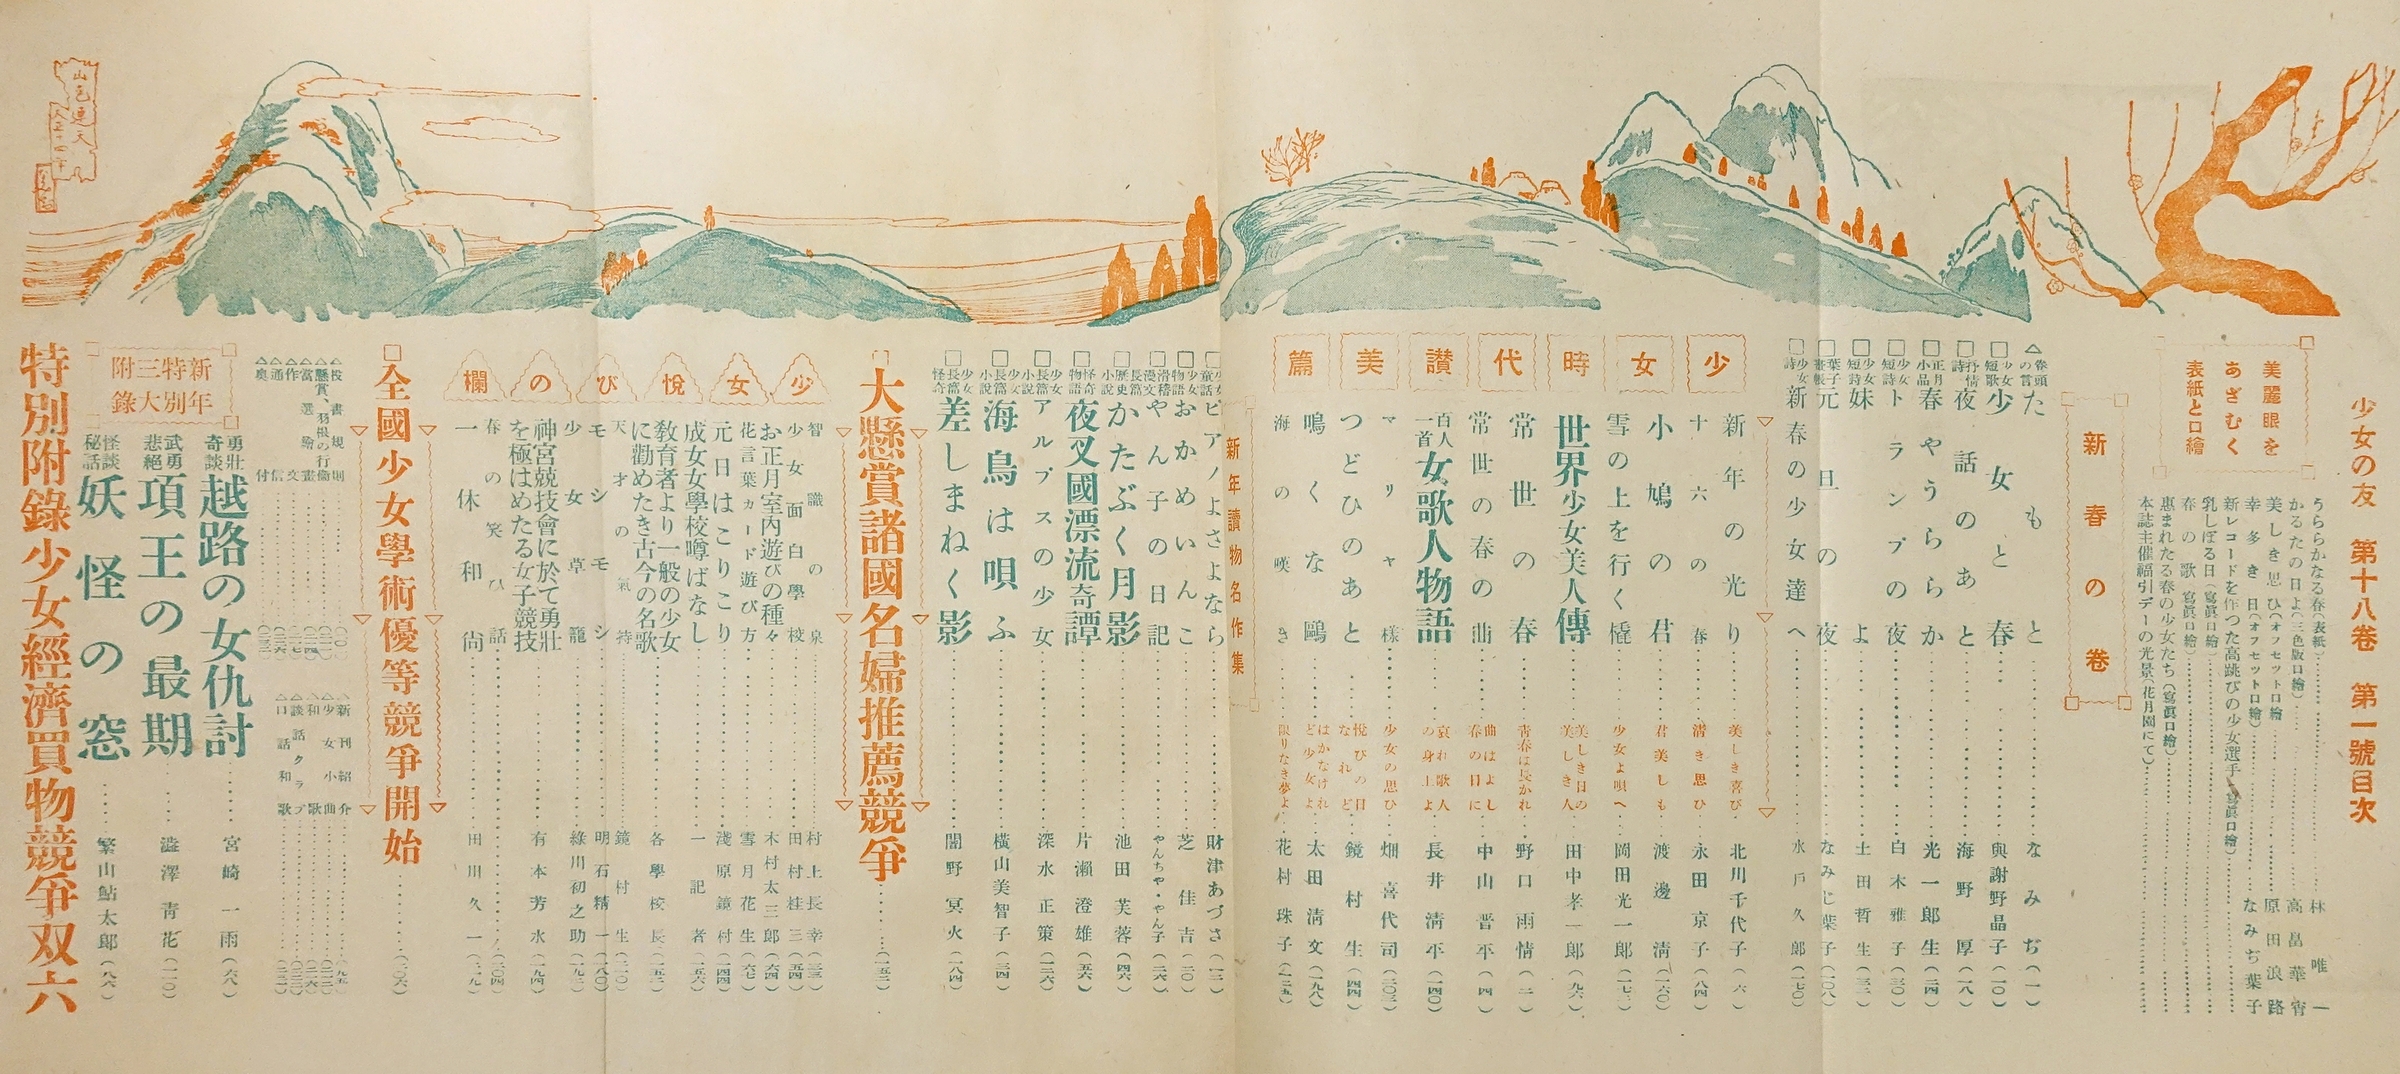 少女の友 第十八卷 第一號目次
美麗眼を
あざむく
表紙と口繪
うららかなる春(表紙)……林唯一
かるたの日よ(三色版口繪)……高畠華宵
美しき思ひ(オフセット口繪)……原田浪路
幸多き日(オフセット口繪)……なみぢ葉子
新レコードを作つた高跳びの少女選手(寫眞口繪)
乳しぼる日(寫眞口繪)
春の歌(寫眞口繪)
惠まれたる春の少女たち(寫眞口繪)
本誌主催福引デーの光景(花月園にて)
新春の卷
△卷頭の言 たもと……なみぢ(一)
□少女短歌 少女と春……與謝野晶子(一〇)
□抒情詩 夜話のあと……海野厚(一八)
□正月小品 春やうららか……光一郎生(二四)
□少女短詩 トランプの夜……白木雅子(三〇)
□少女短詩 妹よ……土田哲生(三二)
□葉子畫帳 元旦の夜……なみじ葉子(一〇八)
□少女詩 新春の少女達へ……水戶久郎(一七〇)
少女時代讃美篇
新年の光り……美しき喜び……北川千代子(六)
十六の春……淸き思ひ……永田京子(八四)
小鳩の君……君美しも……渡邊淸(一六〇)
雪の上を行く橇……少女よ唄へ……岡田光一郎(一七二)
世界少女美人傳……美しき日の美しき人……田中孝一郎(九六)
常世の春……靑春は長かれ……野口雨情(二)
常世の春の曲……曲はよし春の日に……中山晋平(四)
百人一首 女歌人物語……哀れ歌人の身上よ……長井淸平(一四〇)
マリヤ樣……少女の思ひ……畑喜代司(二〇三)
つどひのあと……悅びの日なれど……鏡村生(四四)
鳴くな鷗……はかなけれど少女よ……太田淸文(一九八)
海の嘆き……限りなき夢よ……花村珠子(一三五)
新年讀物名作集
□少女童話 ピアノよさよなら……財津あづさ(一二)
□少女物語 おかめいんこ……芝佳吉(二〇)
□滑稽漫文 やん子の日記……やんちや・やん子(二六)
□長篇歷史小說 かたぶく月影……池田芙蓉(四六)
□怪奇物語 夜叉國漂流奇譚……片瀨澄雄(五六)
□少女長篇小說 アルプスの少女……深水正策(一二六)
□少女長篇小說 海鳥は唄ふ……橫山美智子(三四)
□少女長篇怪奇 差しまねく影……闇野冥火(一八四)
□大懸賞諸國名婦推薦競爭……(一五二)
少女悅びの欄
智識の泉……村上長幸(三三)
少女面白學校……田村桂三(五四)
お正月室內遊びの種々……木村太三郞(六四)
花言葉カード遊び方……雪月花生(六七)
元日はこりこり……淺原鏡村(一四四)
成女女學校噂ばなし……一記者(一五六)
敎育者より一般の少女に勸めたき古今の名歌……各學校長(一五二)
天才の氣持……鏡村生(二一〇)
モシモシ……明石精一(一八〇)
少女草籠……綠川初之助(一九二)
神宮競技會に於て勇壯を極はめたる女子競技……有本芳水(一九四)
春の笑ひ話……(二〇四)
一休和尙……田川久一(一七九)
□全國少女學術優等競爭開始……(二〇六)
△投書規則
△懸賞、羽根の行衞
△當選繪畫
△作文
△通信
△奧付
△新刊紹介
△少女小曲
△和歌
△談話クラブ
△口話和歌
新年特別三大附錄
勇壯奇談 越路の女仇討……宮崎一雨(六八)
武勇悲絕 項王の最期……澁澤靑花(一一〇)
怪談秘話 妖怪の窓……繁山鮎太郞(八六)
特別附錄少女經濟買物競爭双六